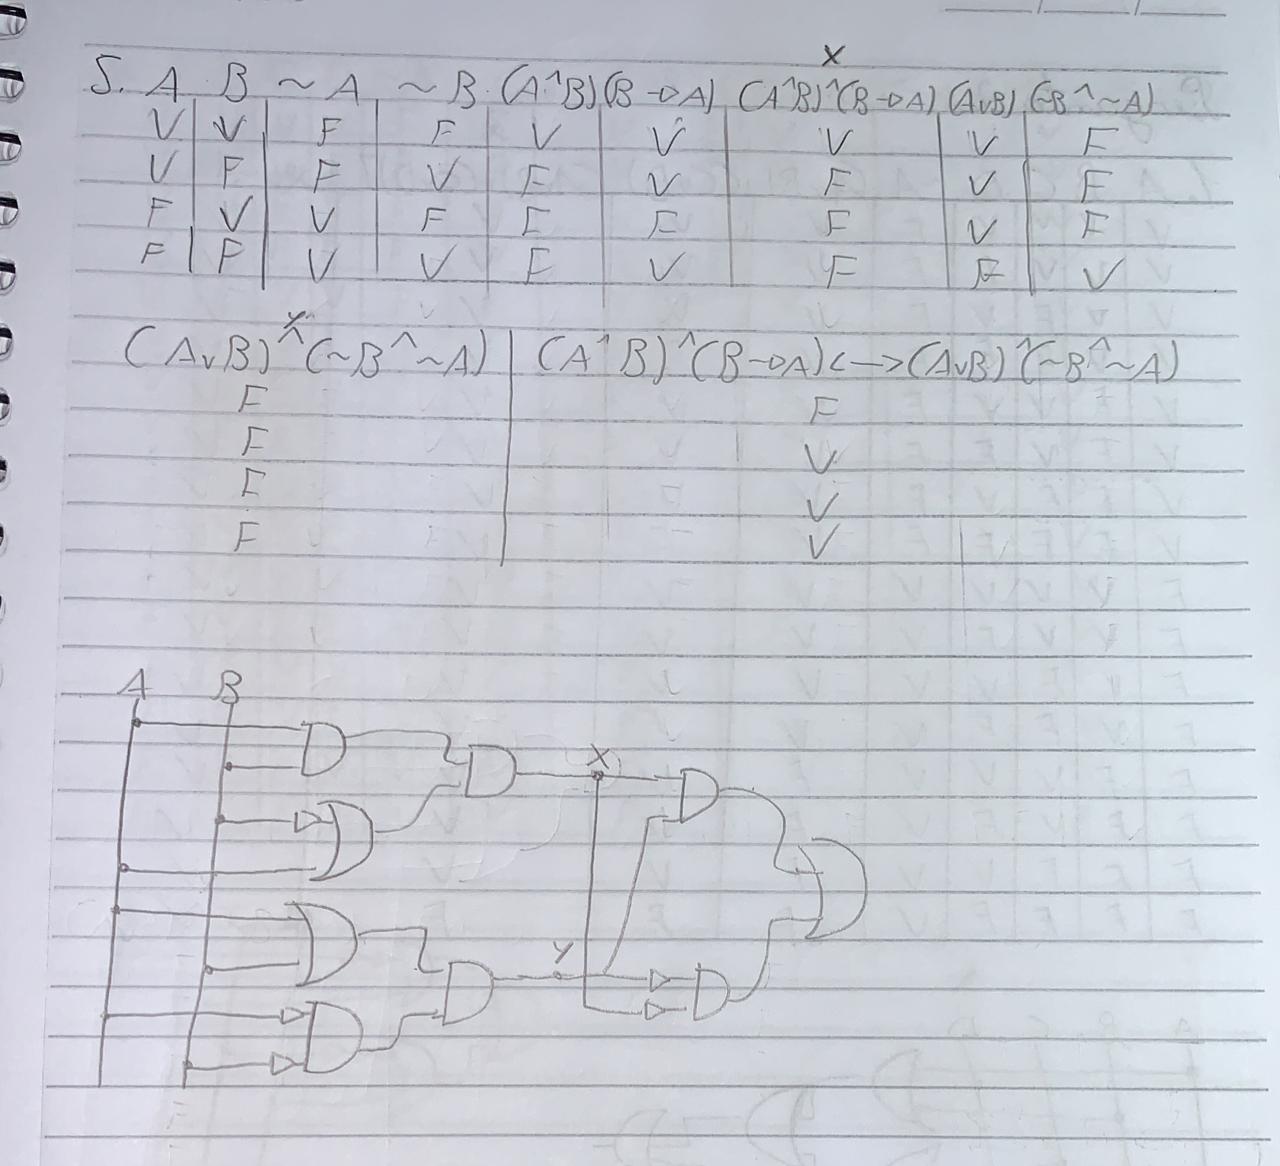 X
5. A B ~A ~B (A^B) (B→A) (A^B)^(B→A) (AvB) (~B^~A)
V V F F V V V V F
V F F V F V F V F
F V V F F F F V F
F F V V F V F F V
Y
(AvB)^(~B^~A) (A^B)^(B→A)<->(AvB)^(~B^~A)
F F
F V
F V
F V
A B
X
Y